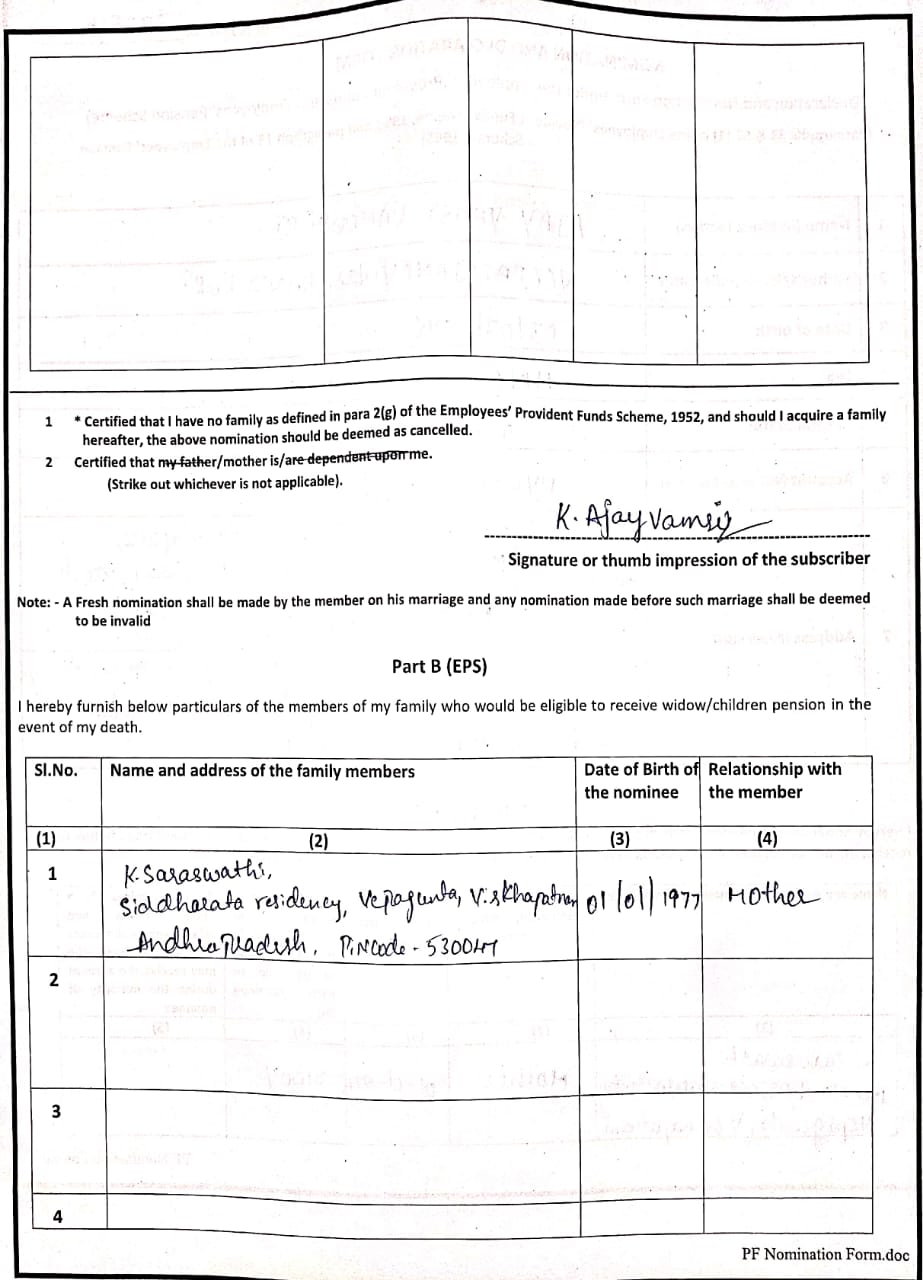 1 * Certified that I have no family as defined in para 2(g) of the Employees' Provident Funds Scheme, 1952, and should I acquire a family
hereafter, the above nomination should be deemed as cancelled.
2 Certified that my father/mother is/are dependent upon me.
(Strike out whichever is not applicable).
K. Ajay Vamsi
Signature or thumb impression of the subscriber
Note: - A Fresh nomination shall be made by the member on his marriage and any nomination made before such marriage shall be deemed
to be invalid
Part B (EPS)
I hereby furnish below particulars of the members of my family who would be eligible to receive widow/children pension in the
event of my death.
Sl.No. Name and address of the family members Date of Birth of Relationship with
the nominee the member
(1) (2) (3) (4)
1 K. Saraswathi,
Siddharata residency, Vepagunta, Viskhapatnam 01/01/1977 Mother
Andhra Pradesh, PiNCode - 530047
2
3
4
PF Nomination Form.doc